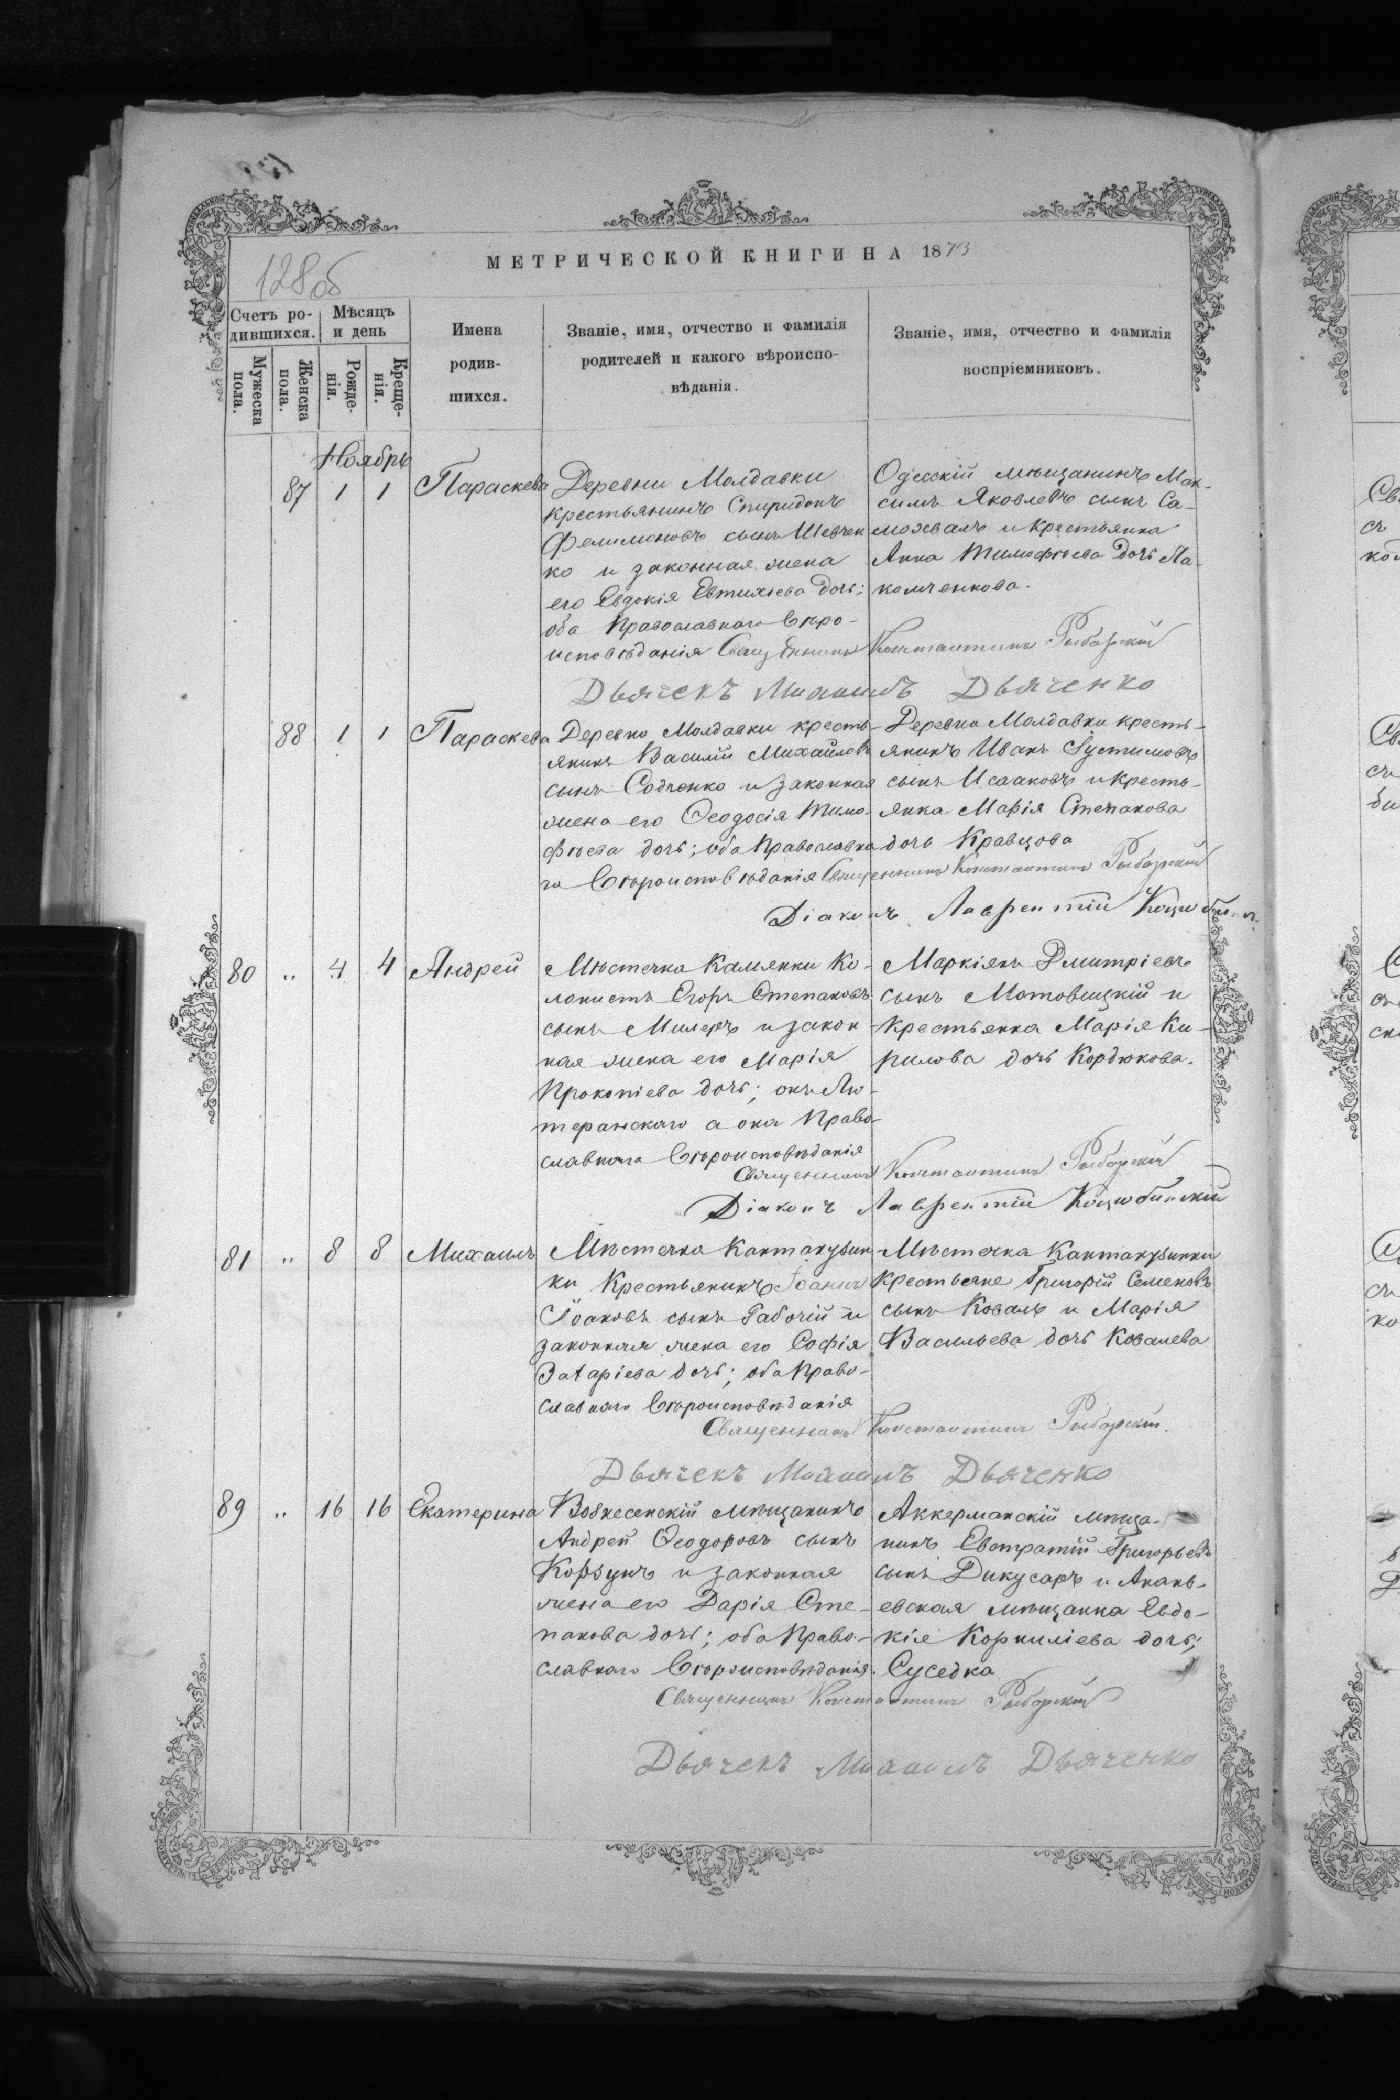 128 об
МЕТРИЧЕСКОЙ КНИГИ НА 1873
Счетъ ро-
дившихся.
Мѣсяцъ
и день
Мужеска
пола.
Женска
пола.
Рожде-
нія.
Креще-
нія.
Имена
родив-
шихся.
Званіе, имя, отчество и фамилія
родителей и какого вѣроиспо-
вѣданія.
Званіе, имя, отчество и фамилія
воспріемниковъ.
Ноябрь
87 1 1 Параскева
Деревни Молдавки
крестьянинъ Спиридонъ
Филимоновъ сынъ Шевчен
ко и законная жена
его Евдокія Евтихіева дочь;
оба Православнаго Вѣро-
исповѣданія
Одесскій мѣщанинъ Мак-
симъ Яковлевъ сынъ Са-
мохвалъ и крестьянка
Анна Тимофѣева дочь Ла-
комченкова.
Священникъ Константинъ Рыбарскій
Дьячекъ Михаилъ Дьяченко
88 1 1 Параскева
Деревни Молдавки кресть-
янинъ Василій Михайловъ
сынъ Содченко и законная
жена его Ѳеодосія Тимо-
фѣева дочь; оба Православна
го Вѣроисповѣданія
Деревни Молдавки кресть-
янинъ Иванъ Густимовъ
сынъ Исааковъ и кресть-
янка Марія Степанова
дочь Кравцова
Священникъ Константинъ Рыбарскій
Діаконъ Лаврентій
80 " 4 4 Андрей
Мѣстечка Каменки Ко-
лонистъ Егоръ Степановъ
сынъ Милеръ и закон
ная жена его Марія
Прокопіева дочь; онъ Лю-
теранскаго а она Право-
славнаго Вѣроисповѣданія
Маркіянъ Дмитріевъ
сынъ Мотовицкій и
крестьянка Марія Ки-
рилова дочь Кордюкова.
Священникъ Константинъ Рыбарскій
Діаконъ Лаврентій Коцюбинскій
81 " 8 8 Михаилъ
Мѣстечка Кантакузин
ки Крестьянинъ Іоаннъ
Іоановъ сынъ Рабочій и
законная жена его Софія
Захаріева дочь; оба Право-
славнаго Вѣроисповѣданія
Мѣстечка Кантакузинки
Крестьяне Григорій Семеновъ
сынъ Коваль и Марія
Васильева дочь Ковалева
Священникъ Константинъ Рыбарскій.
Дьячекъ Михаилъ Дьяченко
89 " 16 16 Екатерина
Вознесенскій мѣщанинъ
Андрей Ѳеодоровъ сынъ
Корзунъ и законная
жена его Дарія Сте-
панова дочь; оба Право-
славнаго Вѣроисповѣданія.
Аккерманскій мѣща-
нинъ Евстратій Григорьевъ
сынъ Дикусаръ и Анань-
евская мѣщанка Евдо-
кія Корниліева дочь;
Суседка
Священникъ Константинъ Рыбарскій
Дьячекъ Михаилъ Дьяченко